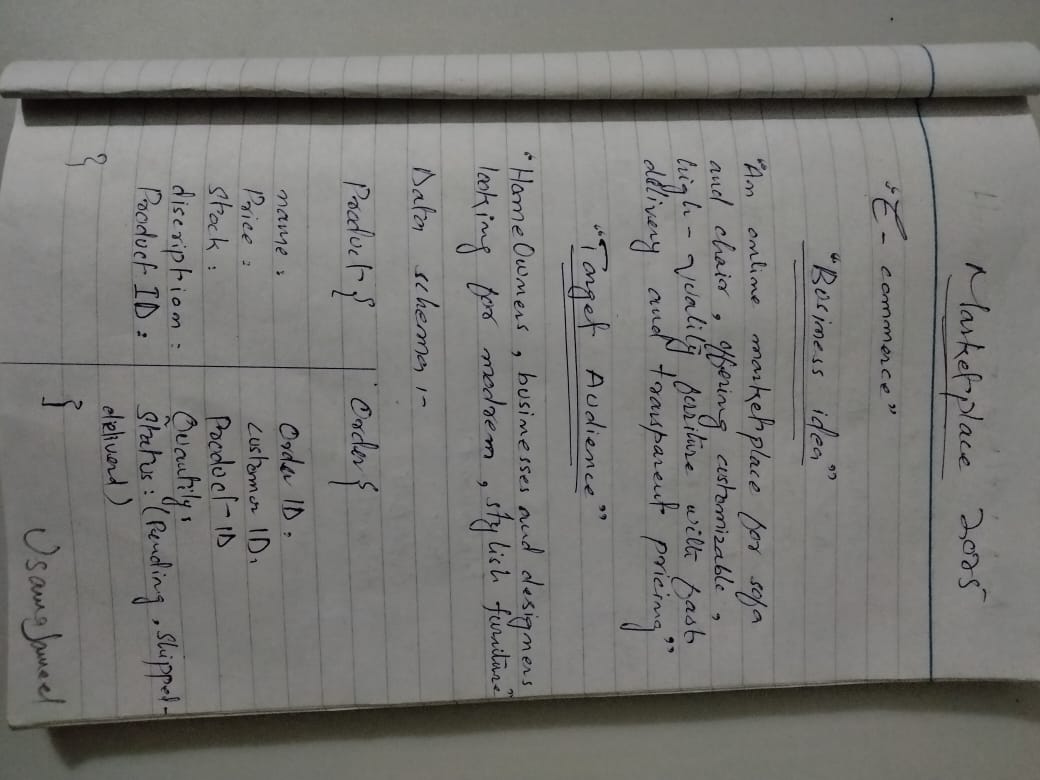 Marketplace 2025
"E-commerce"
"Business idea"
"An online marketplace for sofa
and chair, offering customizable,
high-quality furniture with fast
delivery and transparent pricing"
"Target Audience"
"HomeOwners, businesses and designers
looking for modrem, stylish furniture"
Data schema :-
Product {
name :
Price :
stock :
discription :
Product ID :
}
Order {
Order ID :
customer ID,
Product-ID
Quantity :
Status : (Pending, shipped-
deliverd)
}